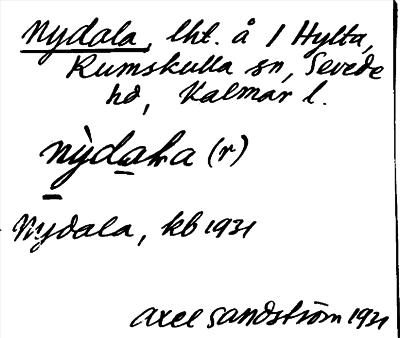 Nydala, lht. å 1 Hylta,
Rumskulla sn, Sevede
hd, Kalmar l.
nỳdaḷa (r)
Nydala, kb 1931
Axel Sandström 1931